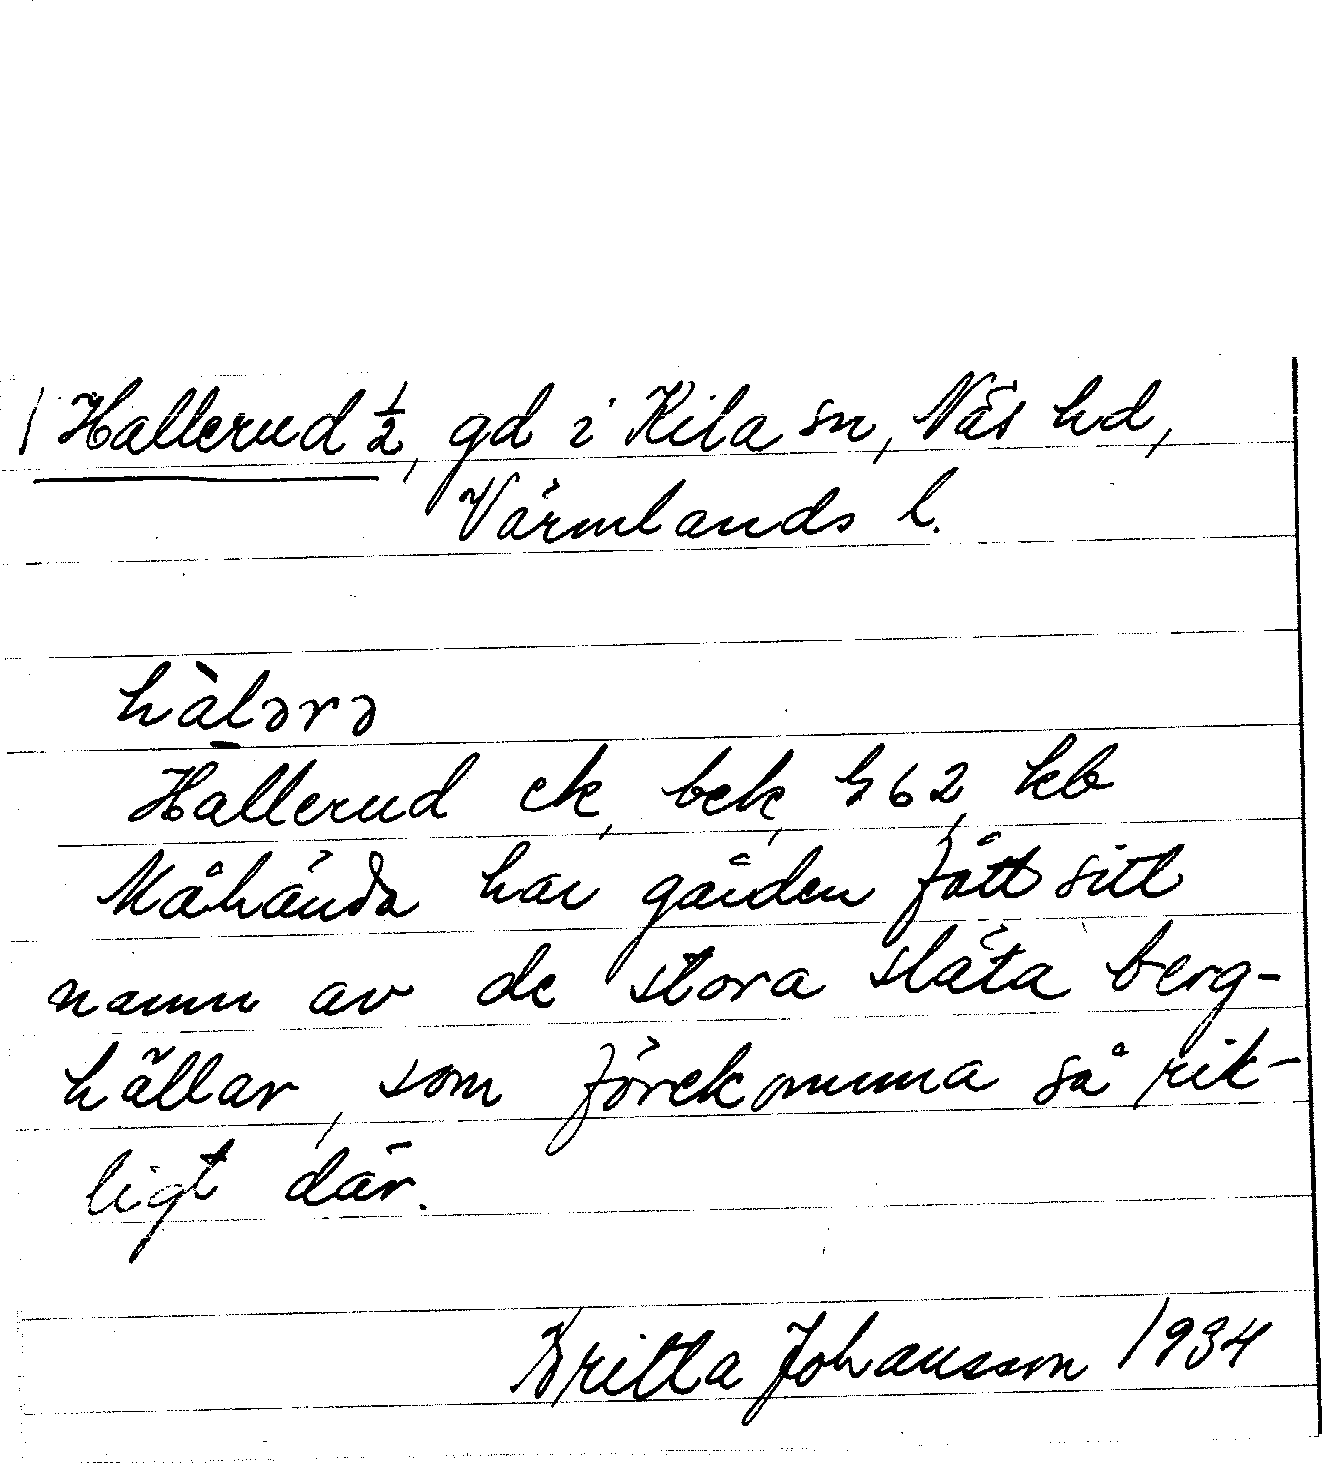 Hallerud ½, gd i Kila sn, Näs hd,
Värmlands l.
hàlərə
Hallerud ek, bek, h 62, kb
Måhända har gården fått sitt
namn av de stora släta berg-
hällar, som förekomma så rik-
ligt där.
Britta Johansson 1934